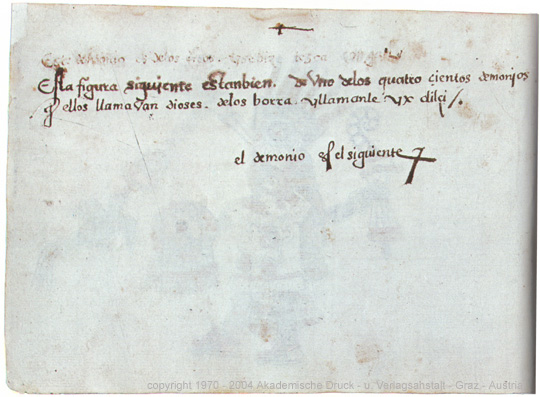 Este demonio es delos
Esta figura siguiente es tanbien. de vno delos quatro çientos demonjos
q̃ ellos llamavan dioses. delos borra. yllamanle yx
el demonio es el siguiente
copyright 1970 - 2004 Akademische Druck - u. Verlagsahstalt - Graz - Austria